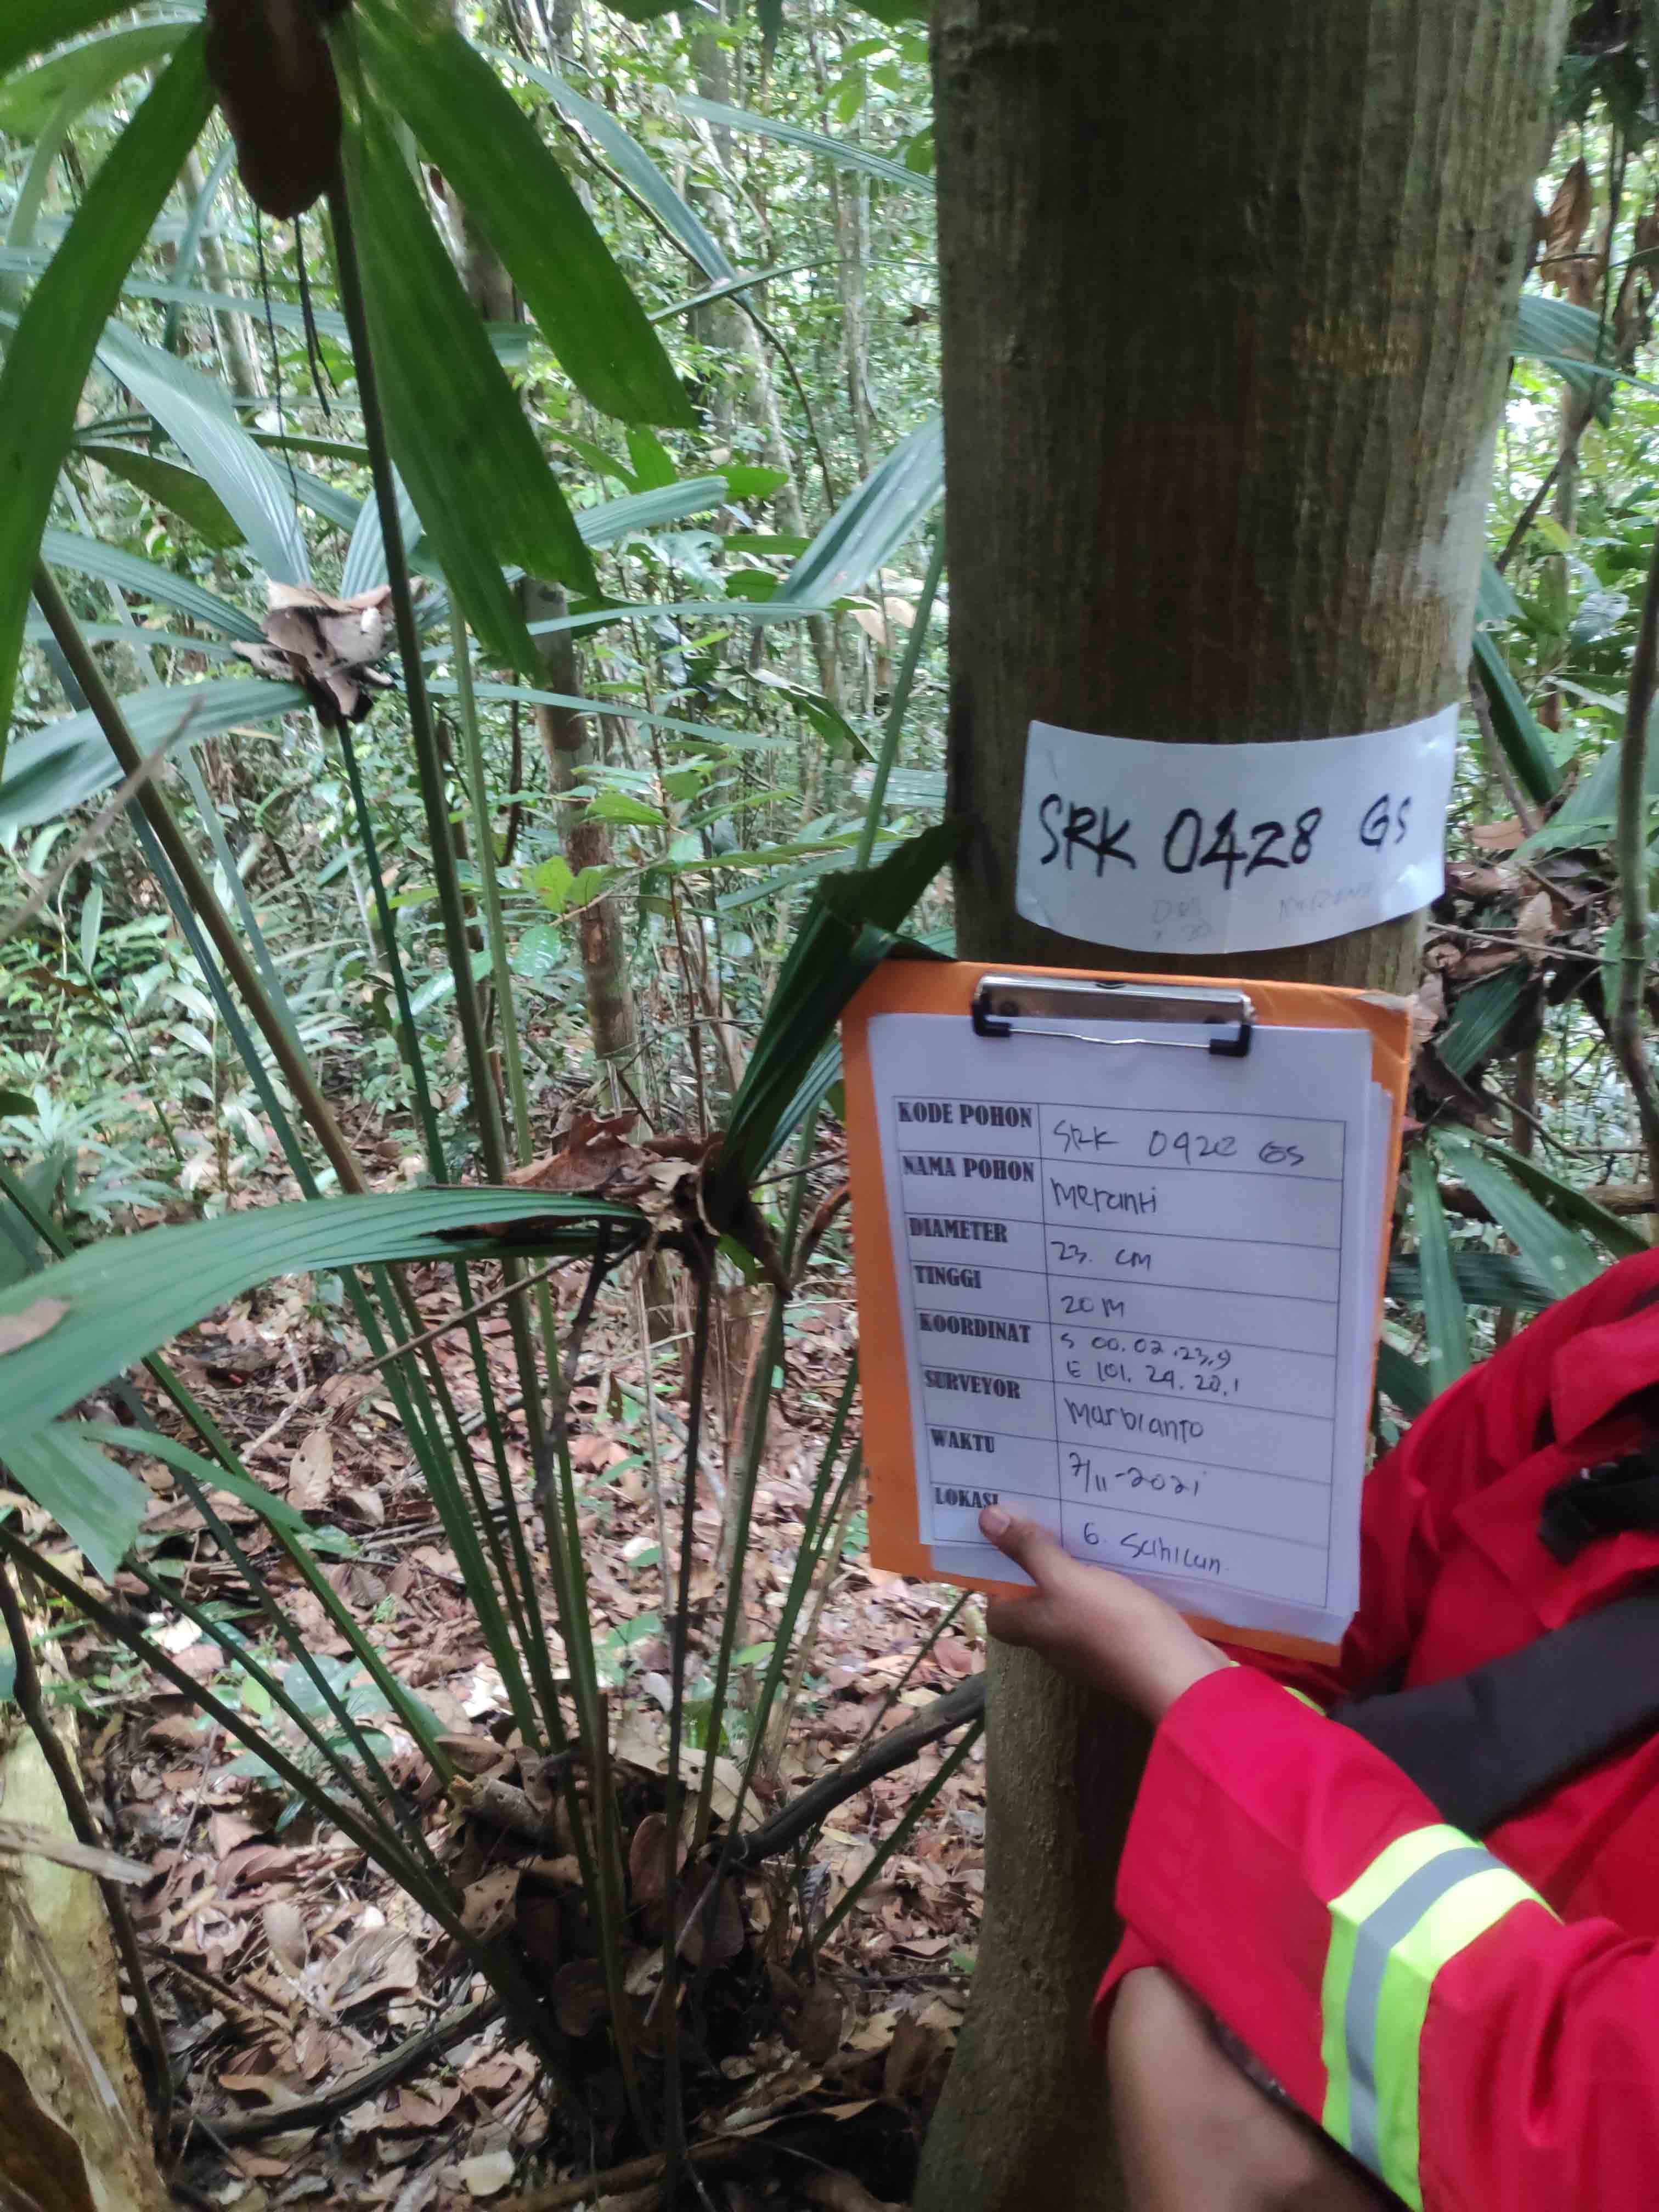 SRK 0428 GS
KODE POHON SRK 0428 GS
NAMA POHON Meranti
DIAMETER 23. cm
TINGGI 20 M
KOORDINAT S 00.02.23,9
E 101. 24. 20,1
SURVEYOR Marbianto
WAKTU 7/11-2021
LOKASI G. Sahilan.